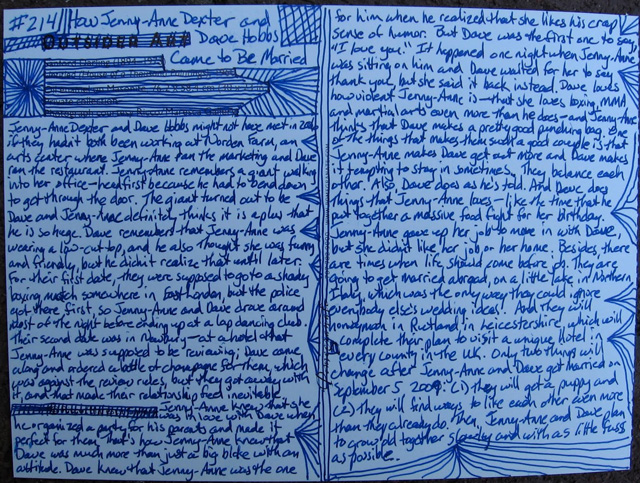 #214 How Jenny-Anne Dexter and
Dave Hobbs
Came to Be Married
Jenny-Anne Dexter and Dave Hobbs might not have met in
if they hadn't both been working at Norden Farm, an
arts center where Jenny-Anne ran the marketing and Dave
ran the restaurant. Jenny-Anne remembers a giant walking
into her office—headfirst because he had to bend down
to get through the door. The giant turned out to be
Dave and Jenny-Anne definitely thinks it is a plus that
he is so huge. Dave remembers that Jenny-Anne was
wearing a low-cut top, and he also thought she was funny
and friendly, but he didn't realize that until later.
For their first date, they were supposed to go to a shady
boxing match somewhere in East London, but the police
got there first, so Jenny-Anne and Dave drove around
most of the night before ending up at a lap dancing club.
Their second date was in Newbury—at a hotel that
Jenny-Anne was supposed to be reviewing; Dave came
along and ordered a bottle of champagne for them, which
was against the review rules, but they got away with
it, and that made their relationship feel inevitable.
Jenny-Anne knew that she
was in love with Dave when
he organized a party for his parents and made it
perfect for them. That's how Jenny-Anne knew that
Dave was much more than just a big bloke with an
attitude. Dave knew that Jenny-Anne was the one
for him when he realized that she likes his crap
sense of humor. But Dave was the first one to say,
"I love you." It happened one night when Jenny-Anne
was sitting on him and Dave waited for her to say
thank you, but she said it back instead. Dave loves
how violent Jenny-Anne is—that she loves boxing, MMA,
and martial arts even more than he does—and Jenny-Anne
thinks that Dave makes a pretty good punching bag. One
of the things that makes them such a good couple is that
Jenny-Anne makes Dave get out more and Dave makes
it tempting to stay in sometimes. They balance each
other. Also, Dave does as he's told. And Dave does
things that Jenny-Anne loves—like the time that he
put together a massive food fight for her birthday.
Jenny-Anne gave up her job to move in with Dave,
but she didn't like her job or her home. Besides, there
are times when life should come before job. They are
going to get married abroad, on a little lake in Northern
Italy, which was the only way they could ignore
everybody else's wedding ideas! And they will
honeymoon in Rutland in Leicestershire, which will
complete their plan to visit a unique hotel in
every county in the UK. Only two things will
change after Jenny-Anne and Dave get married on
September 5, 2009: (1) they will get a puppy and
(2) they will find ways to like each other even more
than they already do. Then, Jenny-Anne and Dave plan
to grow old together slowly and with as little fuss
as possible.